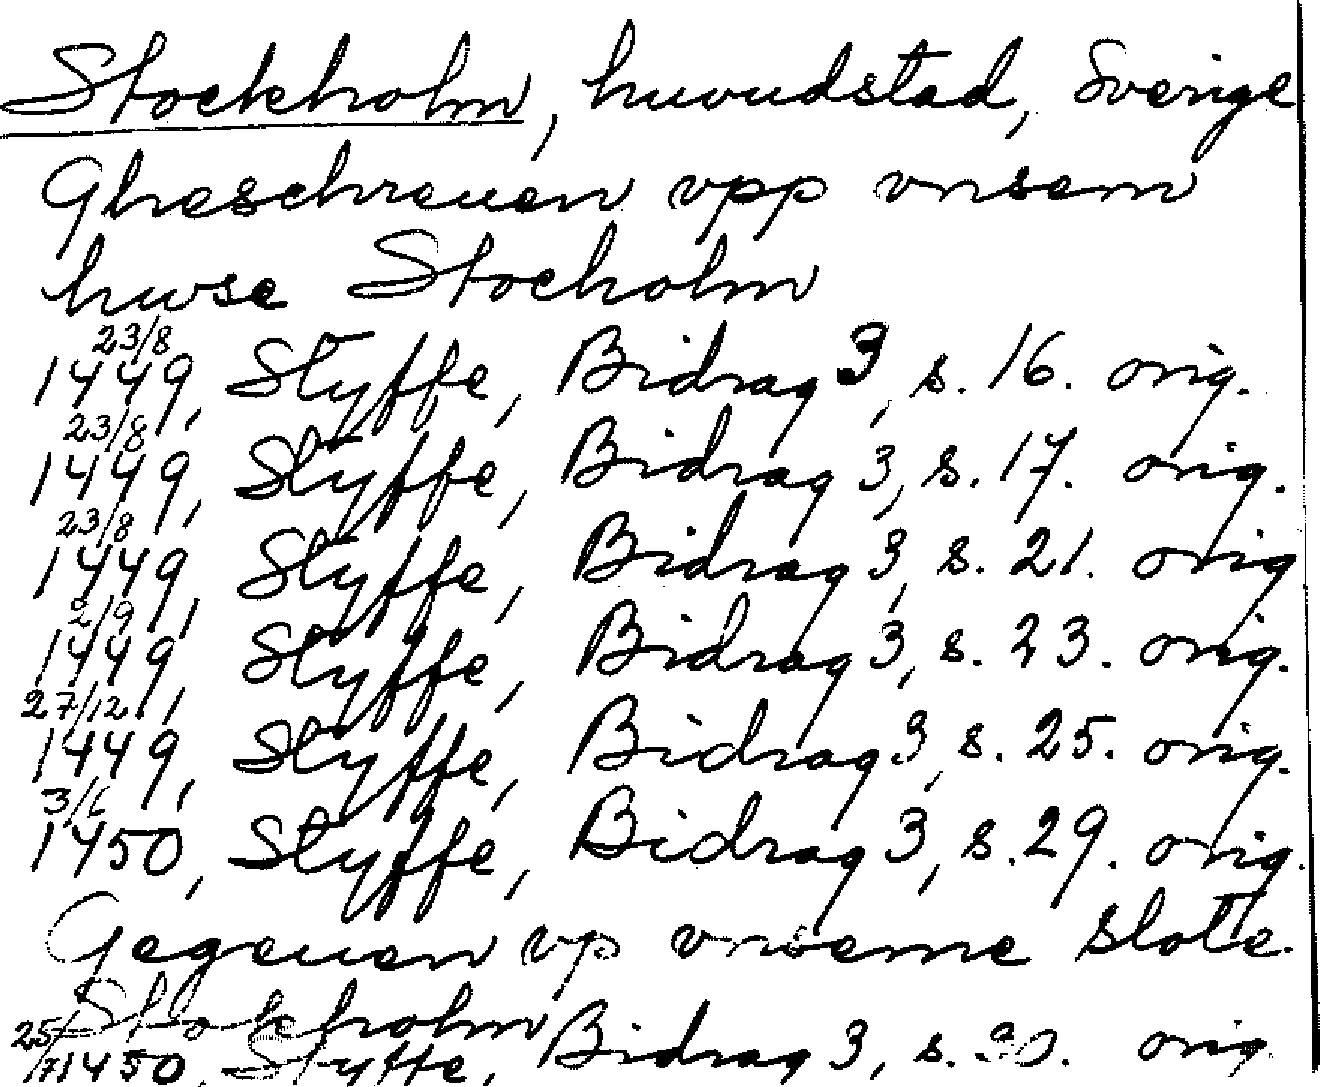 Stockholm, huvudstad, Sverige
Ghescreuen vpp vnsem
huse Stocholm
23/8
1449, Styffe, Bidrag 3, s. 16. orig.
23/8
1449, Styffe, Bidrag 3, s. 17. orig.
23/8
1449, Styffe, Bidrag 3, s. 21. orig
2/9
1449, Styffe, Bidrag 3, s. 23. orig.
27/12
1449, Styffe, Bidrag 3, s. 25. orig.
3/6
1450, Styffe, Bidrag 3, s. 29. orig.
Gegeuen vp vnseme slote
Stokholm
25/7 1450, Styffe, Bidrag 3, s. 30. orig